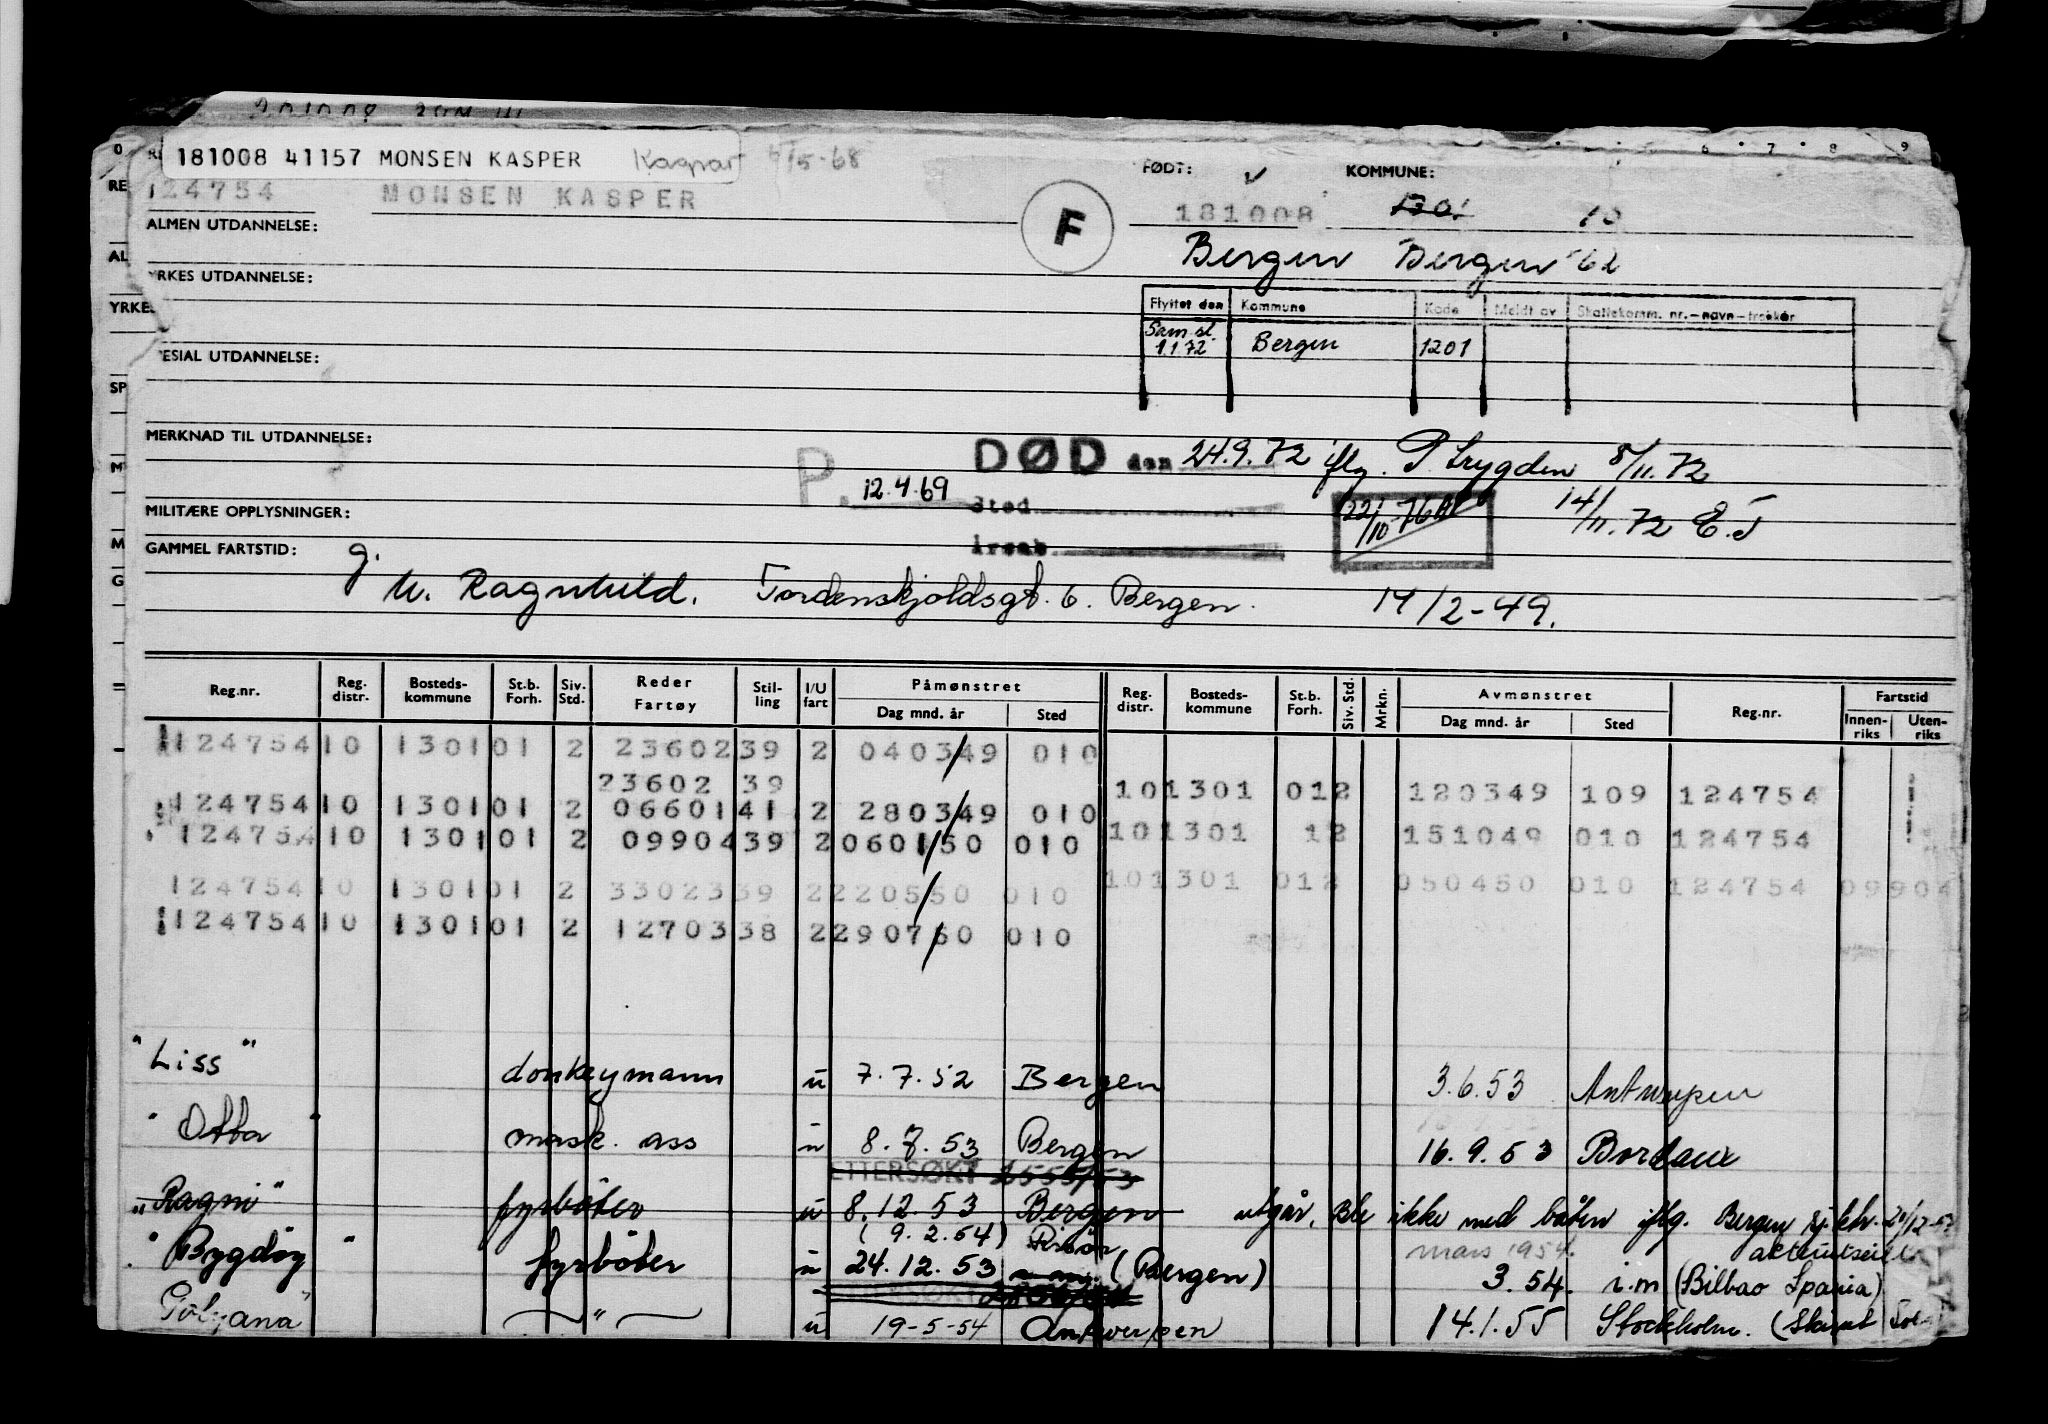 181008 41157 MONSEN KASPER Kaspar 4/5-68
124754 MONSEN KASPER
F
FØDT: KOMMUNE:
181008 1301
Bergen Bergen 62
ALMEN UTDANNELSE:
YRKES UTDANNELSE:
Flyttet den Kommune Kode Meldt av Skattekomm. nr.-navn-trekkår
Sam.sl. 1.1.72 Bergen 1201
SPESIAL UTDANNELSE:
MERKNAD TIL UTDANNELSE:
P. 12.4.69
DØD den 24.9.72 iflg. P. trygden 8/11.72
Sted
Årsak
22/10-76
14/11.72 E.T
MILITÆRE OPPLYSNINGER:
GAMMEL FARTSTID:
g.
u. Ragnhild. Tordenskjoldsgt. 6. Bergen. 14/2-49.
Reg.nr. Reg. distr. Bosteds- kommune St.b. Forh. Siv. Std. Reder Fartøy Stil- ling I/U fart Påmønstret Dag mnd. år Sted Reg. distr. Bosteds- kommune St.b. Forh. Siv. Std. Mrkn. Avmønstret Dag mnd. år Sted Reg.nr. Fartstid Innen- riks Uten- riks
124754 10 1301 01 2 23602 39 2 040349 010
23602 39 10 1301 01 2 120349 109 124754
124754 10 1301 01 2 06601 41 2 280349 010
124754 10 1301 01 2 09904 39 2 060150 010 10 1301 1 2 151049 010 124754
124754 10 1301 01 2 33023 39 2 220550 010 10 1301 01 2 050450 010 124754 09904
124754 10 1301 01 2 12703 38 2 290750 010
"Liss" donkeymann u 7.7.52 Bergen 3.6.53 Antwerpen
"Otta" mask. ass u 8.7.53 Bergen 16.9.53 Bordaux
ETTERSØKT
"Ragni" fyrbøter u 8.12.53 Bergen utgår, Ble ikke med båten iflg. Bergen sj.ktr.
(9.2.54) Risør mars 1954.
"Bygdøy" fyrbøter u 24.12.53 (Bergen) 3.54. i.m (Bilbao Spania)
"Golyana" —"— u 19-5-54 Antwerpen 14.1.55 Stockholm.